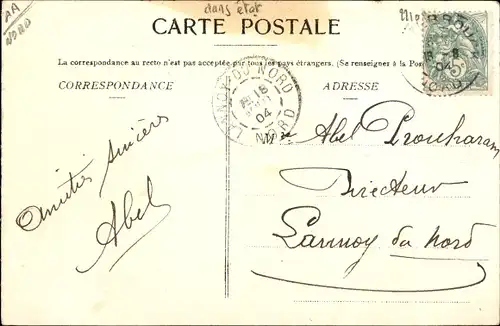 AA
NORD
dans état
CARTE POSTALE
La correspondance au recto n'est pas acceptée par tous les pays étrangers. (Se renseigner à la Pos
CORRESPONDANCE
ADRESSE
LANNOY-DU-NORD
15
04
NORD
04
5
Amitiés sincères
Abel
Abel
Directeur
Lannoy du Nord